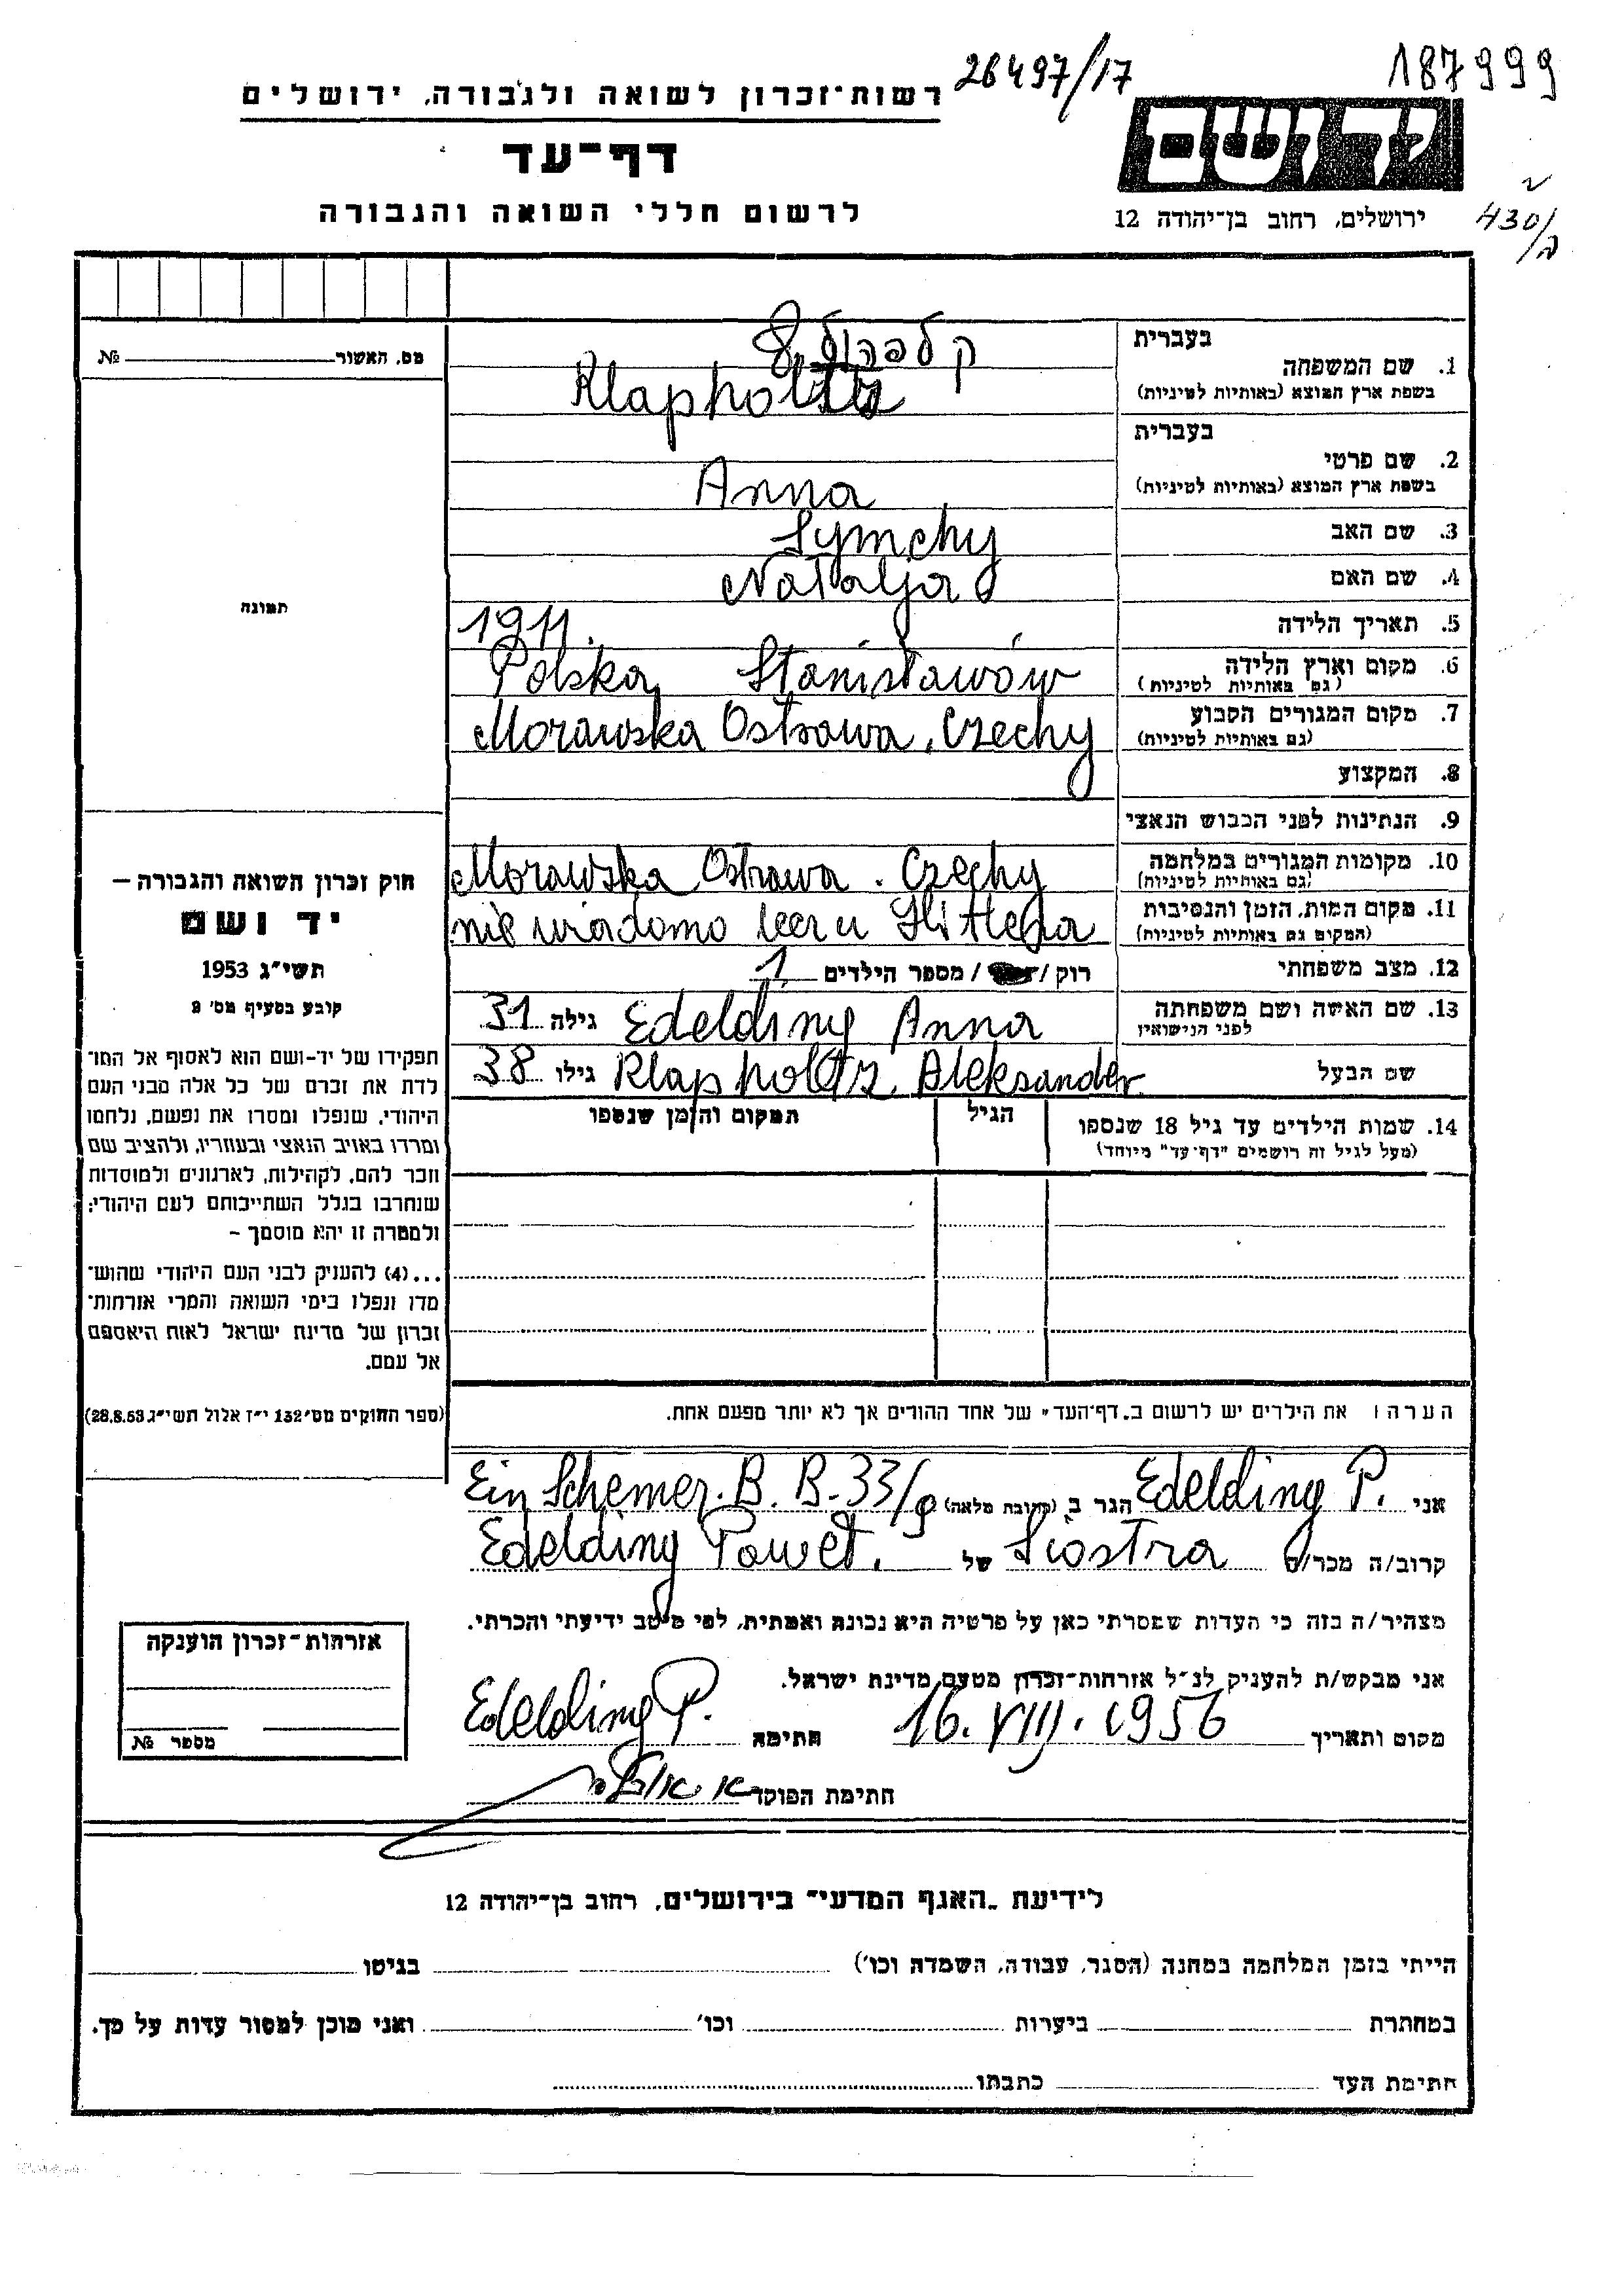 26497/17
187999
רשות־זכרון לשואה ולגבורה, ירושלים
דף־עד
לרשום חללי השואה והגבורה
יד ושם
ירושלים, רחוב בן־יהודה 12
430/ה
מס. האשור № 
תמונה
בעברית
1. שם המשפחה
בשפת ארץ המוצא (באותיות לטיניות)
קלפהולץ
Klapholtz
בעברית
2. שם פרטי
בשפת ארץ המוצא (באותיות לטיניות)
Anna
3. שם האב Symchy
4. שם האם Natalja
5. תאריך הלידה 1911.
6. מקום וארץ הלידה
(גם באותיות לטיניות)
Polska Stanisławów
7. מקום המגורים הקבוע
(גם באותיות לטיניות)
Morawska Ostrawa, Czechy
8. המקצוע
9. הנתינות לפני הכבוש הנאצי
10. מקומות המגורים במלחמה
(גם באותיות לטיניות)
Morawska Ostrawa. Czechy
11. מקום המות, הזמן והנסיבות
(המקום גם באותיות לטיניות)
nie wiadomo Hitlera
12. מצב משפחתי רוק / / מספר הילדים 1
13. שם האשה ושם משפחתה
לפני הנישואין
Edelding Anna גילה 31
שם הבעל Klapholtz Aleksander גילו 38
14. שמות הילדים עד גיל 18 שנספו
(מעל לגיל זה רושמים "דף־עד" מיוחד)
הגיל
המקום והזמן שנספו
חוק זכרון השואה והגבורה —
יד ושם
תשי"ג 1953
קובע בסעיף מס' 2
תפקידו של יד־ושם הוא לאסוף אל המו־
לדת את זכרם של כל אלה מבני העם
היהודי, שנפלו ומסרו את נפשם, נלחמו
ומרדו באויב הנאצי ובעוזריו, ולהציב שם
וזכר להם, לקהילות, לארגונים ולמוסדות
שנחרבו בגלל השתייכותם לעם היהודי;
ולמטרה זו יהא מוסמך –
...(4) להעניק לבני העם היהודי שהוש־
מדו ונפלו בימי השואה והמרי אזרחות־
זכרון של מדינת ישראל לאות היאספם
אל עמם.
(ספר החוקים מס' 132 י"ז אלול תשי"ג 28.8.53)
הערה: את הילדים יש לרשום ב"דף־העד" של אחד ההורים אך לא יותר מפעם אחת.
אני Edelding P. הגר ב (כתובת מלאה) Ein Schemer. B. B-33/9
קרוב/ה מכר/ה Siostra של Edelding Paweł.
מצהיר/ה בזה כי העדות שמסרתי כאן על פרטיה היא נכונה ואמתית, לפי מיטב ידיעתי והכרתי.
אני מבקש/ת להעניק לנ"ל אזרחות־זכרון מטעם מדינת ישראל.
מקום ותאריך 16. VIII. 1956 חתימה Edelding P.
חתימת הפוקד
אזרחות־זכרון הוענקה
מספר №
לידיעת "האגף המדעי" בירושלים, רחוב בן־יהודה 12
הייתי בזמן המלחמה במחנה (הסגר, עבודה, השמדה וכו') בגיטו
במחתרת ביערות וכו' ואני מוכן למסור עדות על כך.
חתימת העד כתבתו